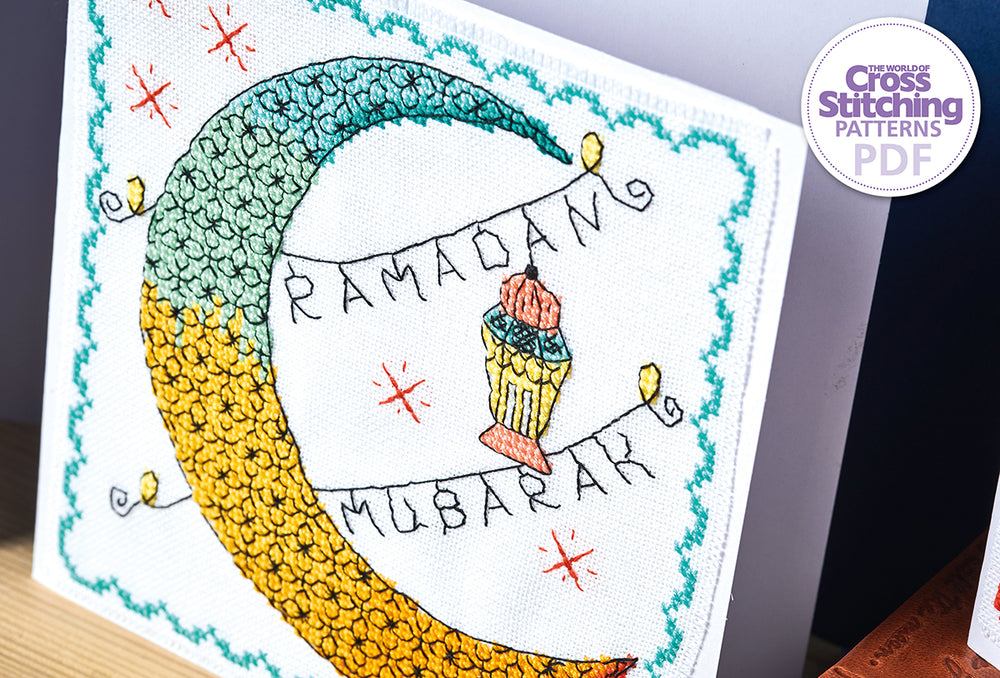 THE WORLD OF
Cross
Stitching
PATTERNS
PDF
RAMADAN
MUBARAK